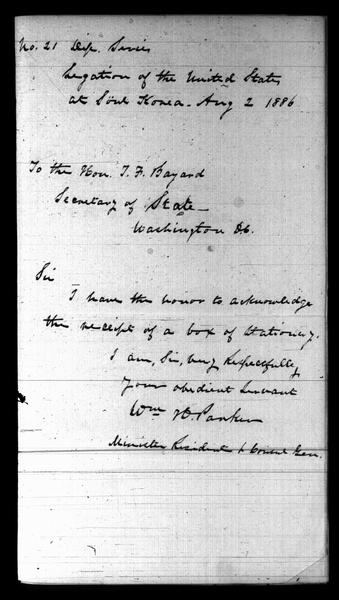 No. 21 Dip. Series
Legation of the United States
at Söul Korea - Aug 2 1886
To the Hon. T. F. Bayard
Secretary of State -
Washington D.C.
Sir
I have the honor to acknowledge
the receipt of a box of Stationery.
I am, Sir, very Respectfully
your obedient Servant
Wm H. Parker
Minister Resident & Consul Gen.